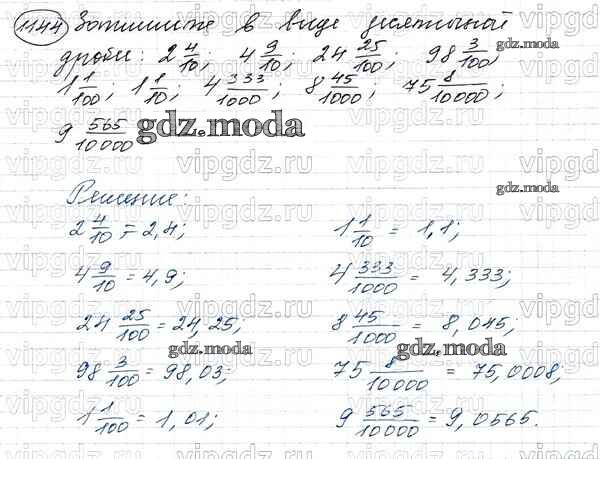 1144 Запишите в виде десятичной
дроби: 2 4/10; 4 9/10; 24 25/100; 98 3/100;
1 1/100; 1 1/10; 4 333/1000; 8 45/1000; 75 8/10000;
9 565/10000
gdz.moda
gdz.moda
gdz.moda
Решение:
2 4/10 = 2,4; 1 1/10 = 1,1;
4 9/10 = 4,9; 4 333/1000 = 4,333;
24 25/100 = 24,25; 8 45/1000 = 8,045;
gdz.moda
gdz.moda
98 3/100 = 98,03; 75 8/10000 = 75,0008;
1 1/100 = 1,01; 9 565/10000 = 9,0565.
vipgdz.ru